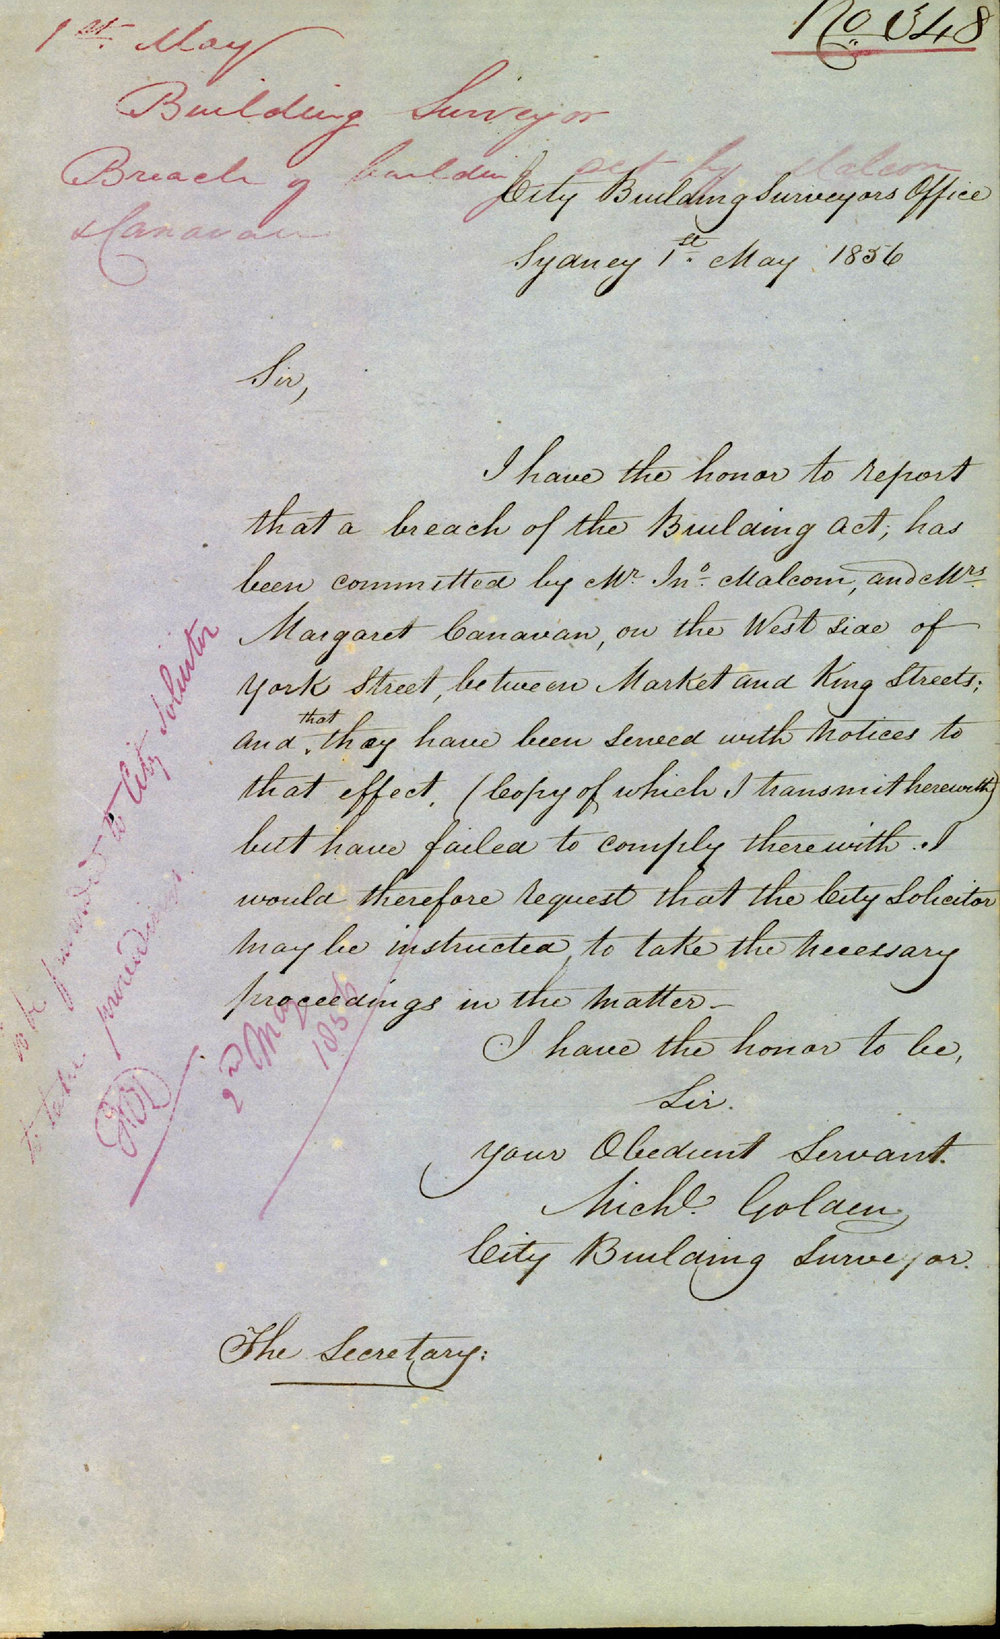 No. 348
1st. May
Building Surveyor
Breach of building act by Malcom
& Canavan
City Building Surveyors Office
Sydney 1st. May 1856
Sir,
I have the honor to report
that a breach of the Building Act, has
been committed by Mr. Jno. Malcom, and Mrs.
Margaret Canavan, on the West side of
York Street, between Market and King Streets;
and that they have been served with Notices to
that effect, (Copy of which I transmit herewith)
but have failed to comply therewith. I
would therefore request that the City Solicitor
may be instructed, to take the necessary
proceedings in the matter—
I have the honor to be,
Sir.
Your Obedient Servant.
Michl. Golden,
City Building Surveyor.
The Secretary;
to be forwarded to City Solicitor
to take proceedings.
2nd May
1856